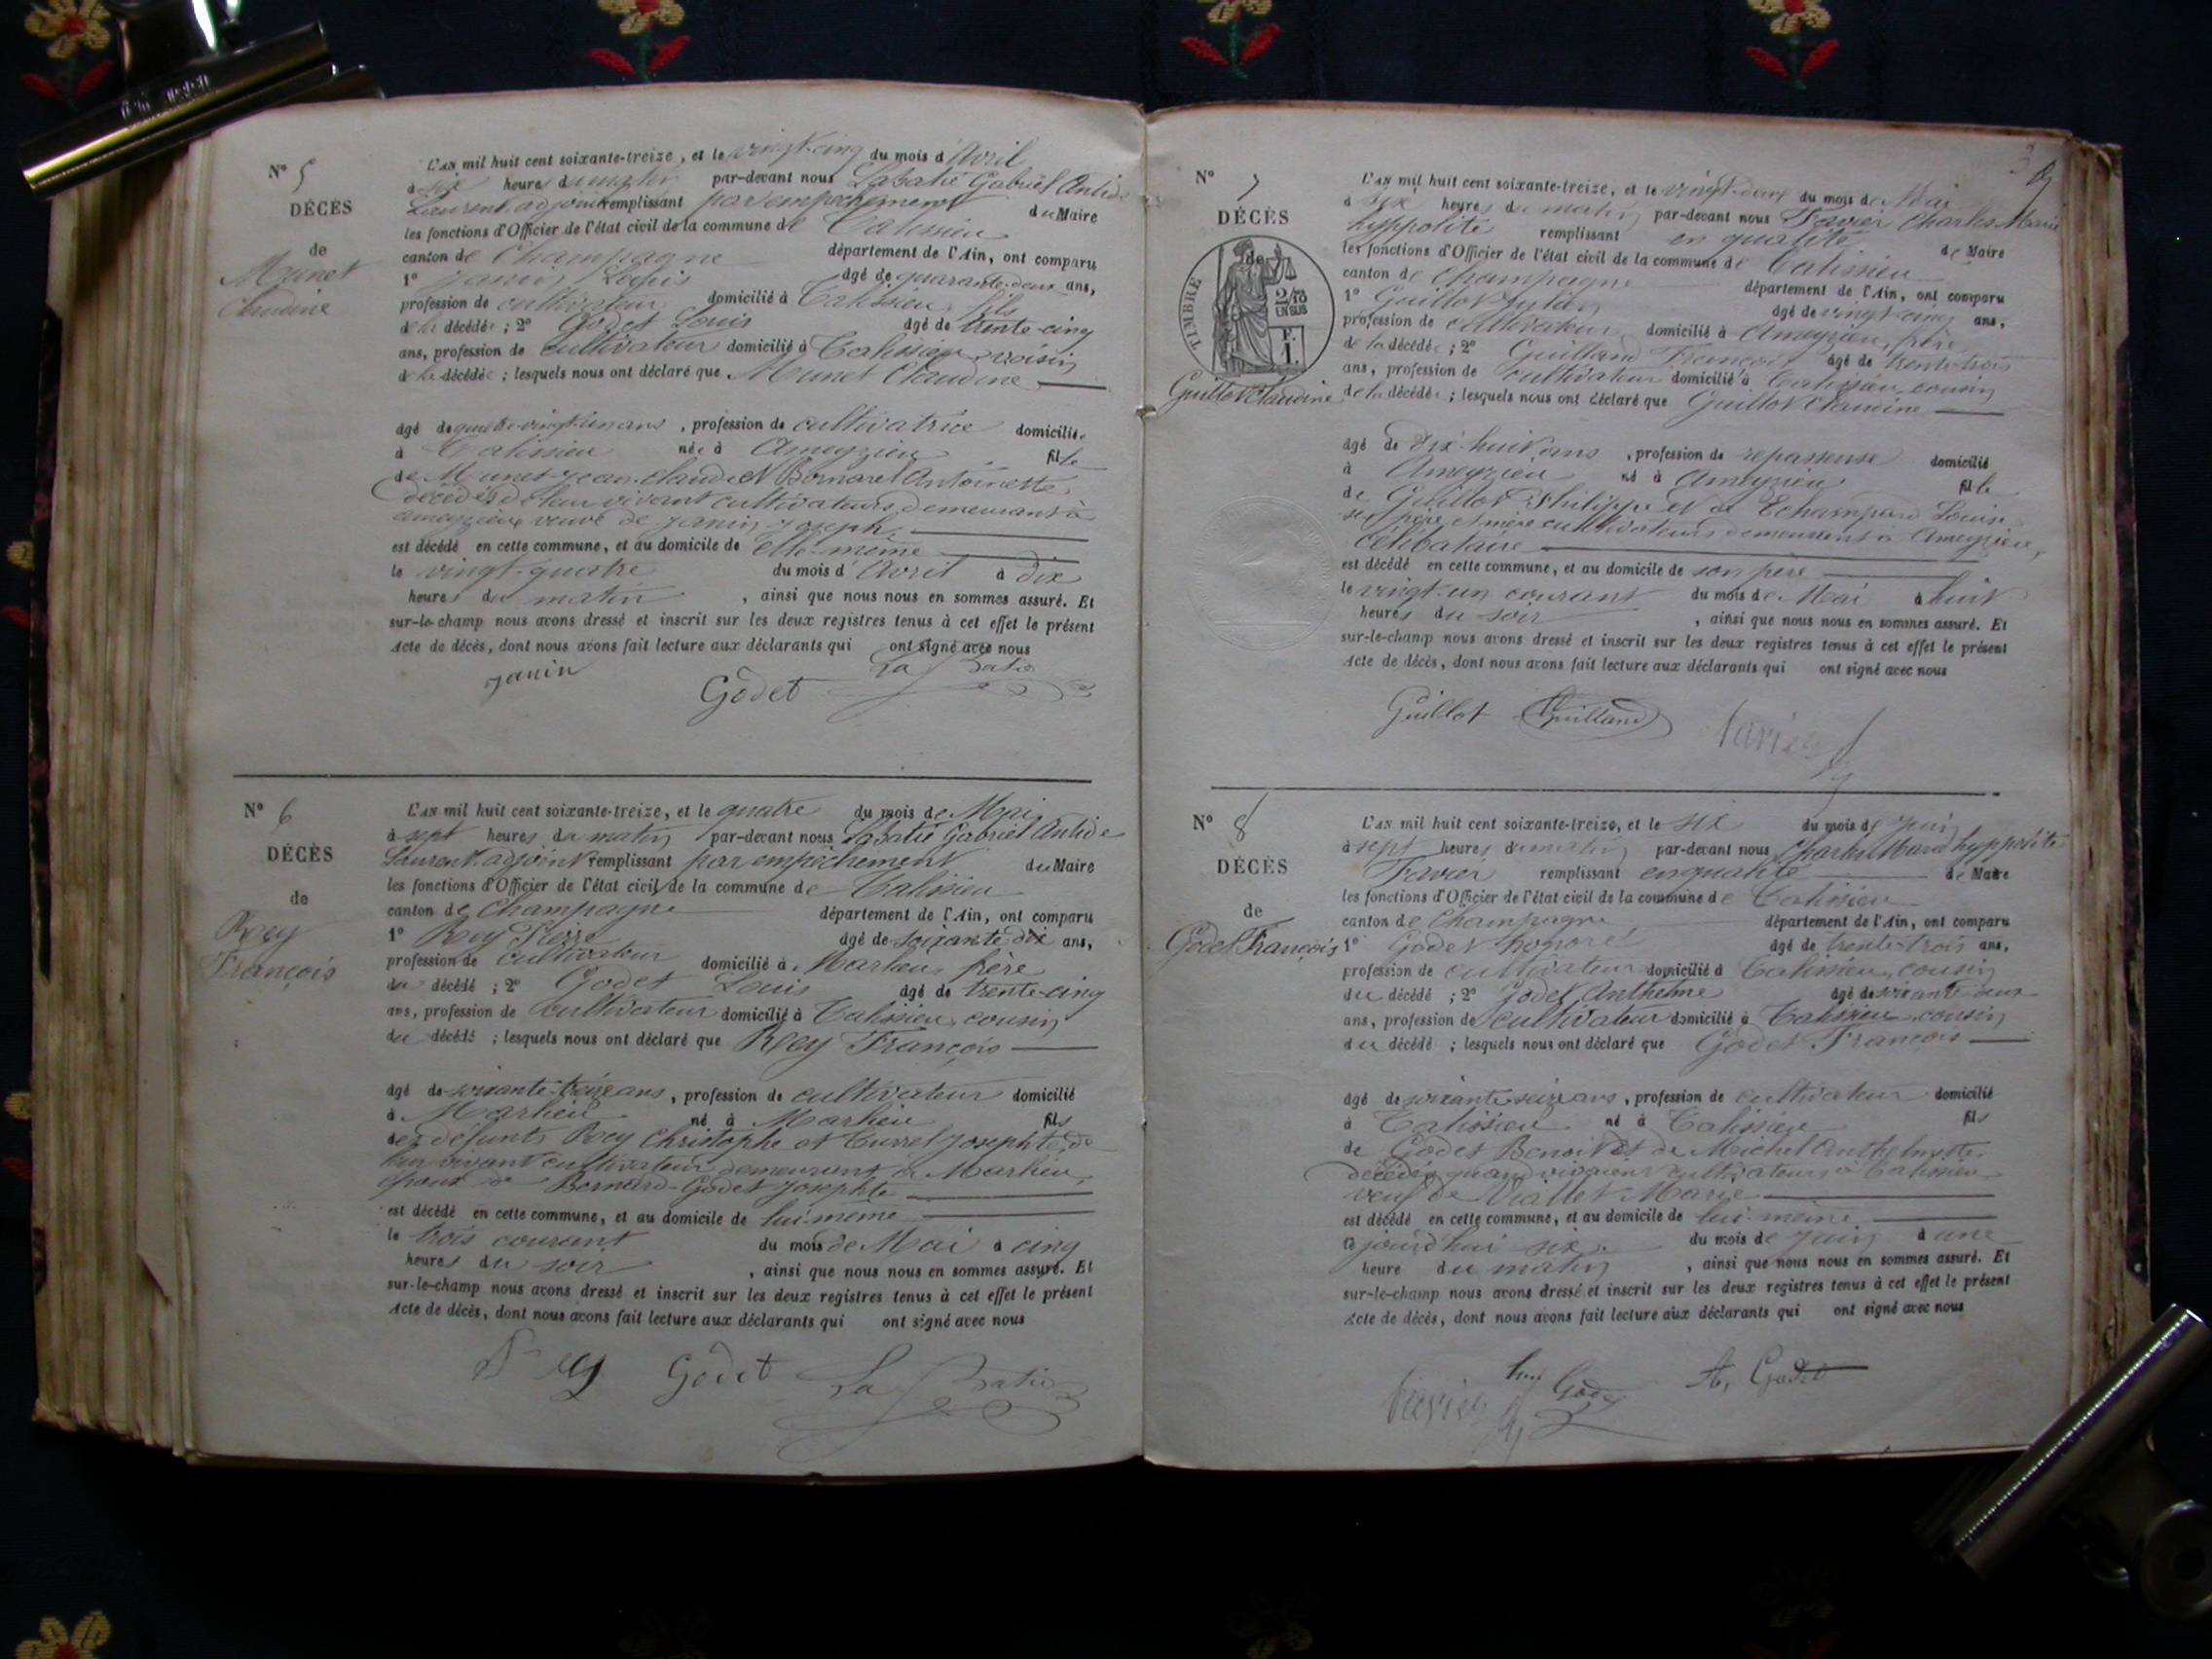 N° 5
DÉCÈS
de
Munet
Claudine
L'AN mil huit cent soixante-treize, et le vingt-cinq du mois d'Avril
à six heures du matin par-devant nous Labatie Gabriel Antide
Laurent, adjoint remplissant par empêchement du Maire
les fonctions d'Officier de l'état civil de la commune de Talissieu
canton de Champagne département de l'Ain, ont comparu
1° Janin Louis âgé de quarante-deux ans,
profession de cultivateur domicilié à Talissieu, fils
de la décédée ; 2° Godet Louis âgé de trente-cinq
ans, profession de cultivateur domicilié à Talissieu, voisin
de la décédée ; lesquels nous ont déclaré que Munet Claudine
âgé de quatre-vingt-un ans, profession de cultivatrice domiciliée
à Talissieu née à Ameyzieu fille
de Munet Jean-Claude et Bornarel Antoinette
décédés de leur vivant cultivateurs demeurant à
Ameyzieu veuve de Janin Joseph
est décédé en cette commune, et au domicile de elle-même
le vingt-quatre du mois d'Avril à dix
heures du matin, ainsi que nous nous en sommes assuré. Et
sur-le-champ nous avons dressé et inscrit sur les deux registres tenus à cet effet le présent
Acte de décès, dont nous avons fait lecture aux déclarants qui ont signé avec nous
Janin
Godet La Batie
N° 6
DÉCÈS
de
Rey
François
L'AN mil huit cent soixante-treize, et le quatre du mois de Mai
à sept heures du matin par-devant nous Labatie Gabriel Antide
Laurent, adjoint remplissant par empêchement du Maire
les fonctions d'Officier de l'état civil de la commune de Talissieu
canton de Champagne département de l'Ain, ont comparu
1° Rey Pierre âgé de soixante-dix ans,
profession de cultivateur domicilié à Marlieu, frère
du décédé ; 2° Godet Louis âgé de trente-cinq
ans, profession de cultivateur domicilié à Talissieu, cousin
du décédé ; lesquels nous ont déclaré que Rey François
âgé de soixante-treize ans, profession de cultivateur domicilié
à Marlieu né à Marlieu fils
des défunts Rey Christophe et Curret Josephte, de
leur vivant cultivateur demeurant à Marlieu,
époux de Bernard-Godet Josephte
est décédé en cette commune, et au domicile de lui-même
le trois courant du mois de Mai à cinq
heures du soir, ainsi que nous nous en sommes assuré. Et
sur-le-champ nous avons dressé et inscrit sur les deux registres tenus à cet effet le présent
Acte de décès, dont nous avons fait lecture aux déclarants qui ont signé avec nous
Rey Godet La Batie
N° 7
DÉCÈS
de
TIMBRE
2/10
EN SUS
F.
1.
Guillot Claudine
L'AN mil huit cent soixante-treize, et le vingt-deux du mois de Mai
à six heures du matin par-devant nous Favier Charles Marie
hyppolite remplissant en qualité de Maire
les fonctions d'Officier de l'état civil de la commune de Talissieu
canton de Champagne département de l'Ain, ont comparu
1° Guillot âgé de vingt-cinq ans,
profession de cultivateur domicilié à Ameyzieu, frère
de la décédée ; 2° Guilland François âgé de trente-trois
ans, profession de cultivateur domicilié à Talissieu, cousin
de la décédée ; lesquels nous ont déclaré que Guillot Claudine
âgé de dix-huit ans, profession de repasseuse domicilié
à Ameyzieu né à Ameyzieu fille
de Guillot Philippe et de Echampard Louise
ses père et mère cultivateurs demeurant à Ameyzieu,
célibataire
est décédé en cette commune, et au domicile de son père
le vingt-un courant du mois de Mai à huit
heures du soir, ainsi que nous nous en sommes assuré. Et
sur-le-champ nous avons dressé et inscrit sur les deux registres tenus à cet effet le présent
Acte de décès, dont nous avons fait lecture aux déclarants qui ont signé avec nous
Guillot Guilland Favier
N° 8
DÉCÈS
de
Godet François
L'AN mil huit cent soixante-treize, et le six du mois de Juin
à sept heures du matin par-devant nous Charles Marie hyppolite
Favier remplissant en qualité de Maire
les fonctions d'Officier de l'état civil de la commune de Talissieu
canton de Champagne département de l'Ain, ont comparu
1° Godet honoré âgé de trente-trois ans,
profession de cultivateur domicilié à Talissieu, cousin
du décédé ; 2° Godet Anthelme âgé de soixante-deux
ans, profession de cultivateur domicilié à Talissieu, cousin
du décédé ; lesquels nous ont déclaré que Godet François
âgé de soixante-seize ans, profession de cultivateur domicilié
à Talissieu né à Talissieu fils
de Godet Benoit et de Michel Anthelmette
décédés quand vivaient cultivateurs à Talissieu
veuf de Viallet Marie
est décédé en cette commune, et au domicile de lui-même
jourd'hui six du mois de Juin à une
heure du matin, ainsi que nous nous en sommes assuré. Et
sur-le-champ nous avons dressé et inscrit sur les deux registres tenus à cet effet le présent
Acte de décès, dont nous avons fait lecture aux déclarants qui ont signé avec nous
Favier Godet A. Godet